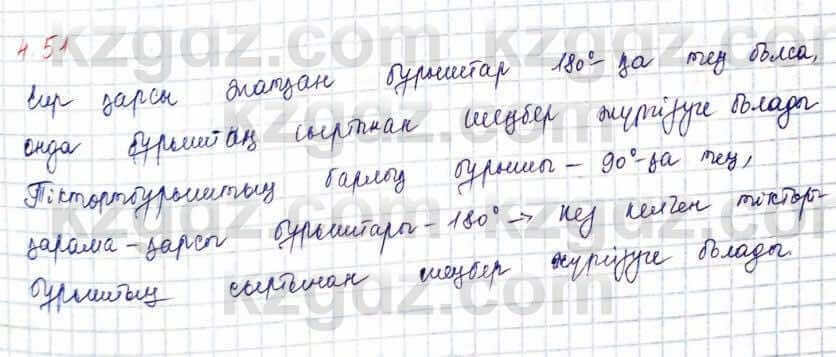 4.51
Бір қарсы жатқан бұрыштар 180°-қа тең болса,
онда бұрыштың сыртынан шеңбер жүргізуге болады
Тіктөртбұрыштың барлық бұрышы - 90°-қа тең,
қарама-қарсы бұрыштары - 180° → кез келген тіктөрт-
бұрыштың сыртынан шеңбер жүргізуге болады.
kzgdz.com